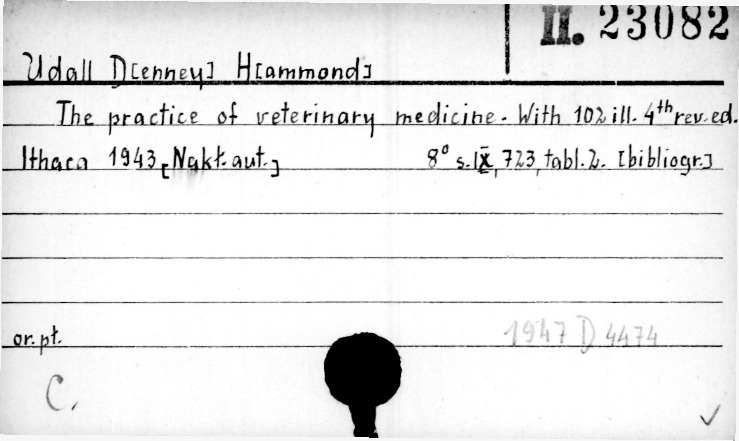 II. 23082
Udall D[enney] H[ammond]
The practice of veterinary medicine. With 102 ill. 4th rev. ed.
Ithaca 1943 [Nakł. aut.] 8° s. IX, 723, tabl. 2. [bibliogr.]
or. pł. 1947 D 4474
C.